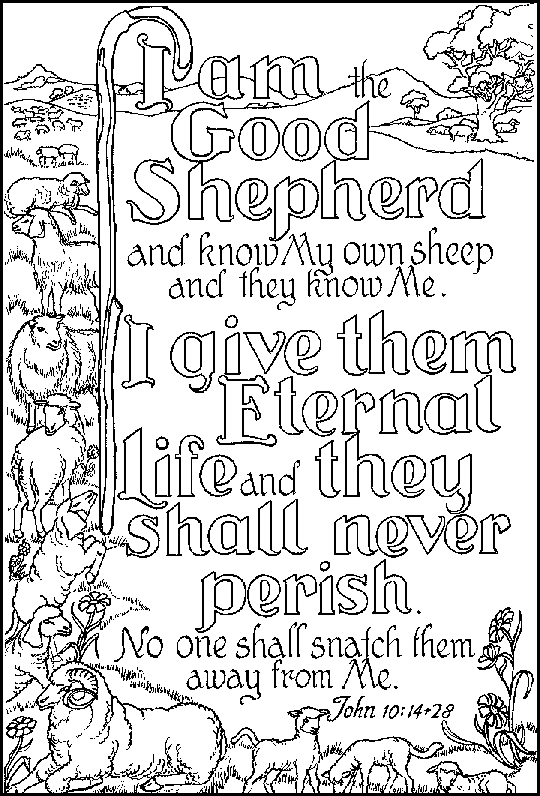 I am the
Good
Shepherd
and know My own sheep
and they know Me.
I give them
Eternal
Life and they
shall never
perish.
No one shall snatch them
away from Me.
John 10:14+28